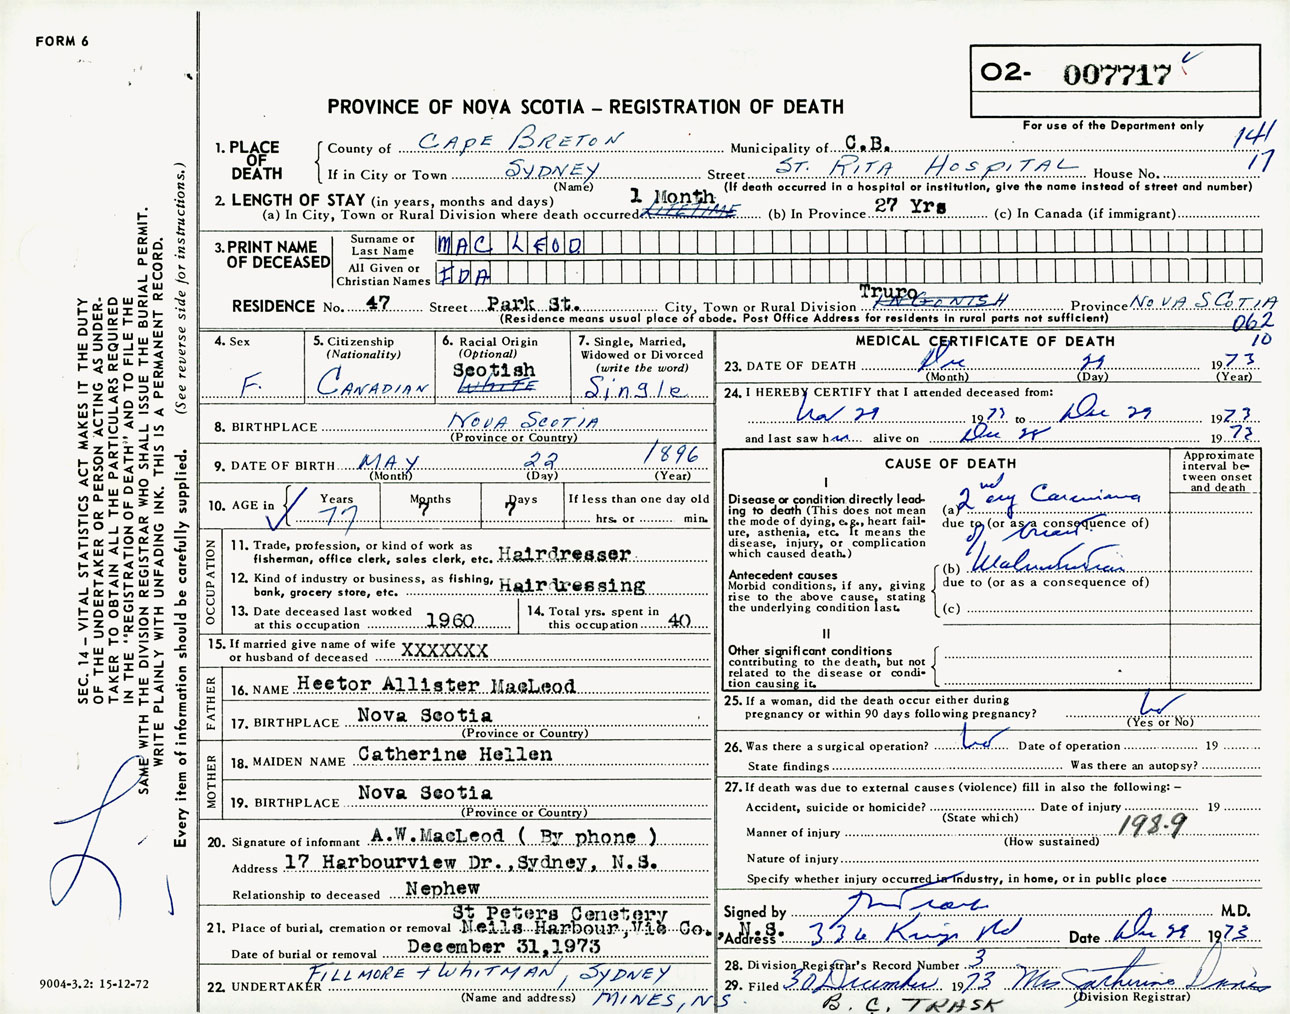 FORM 6
O2- 007717
For use of the Department only
PROVINCE OF NOVA SCOTIA – REGISTRATION OF DEATH
141
17
1. PLACE OF DEATH
County of CAPE BRETON Municipality of C.B.
If in City or Town SYDNEY Street ST. RITA HOSPITAL House No.
(Name) (If death occurred in a hospital or institution, give the name instead of street and number)
2. LENGTH OF STAY (in years, months and days)
(a) In City, Town or Rural Division where death occurred 1 Month LIFETIME (b) In Province 27 Yrs (c) In Canada (if immigrant)
3. PRINT NAME OF DECEASED
Surname or Last Name MAC LEOD
All Given or Christian Names IDA
RESIDENCE No. 47 Street Park St. City, Town or Rural Division Truro INGONISH Province NOVA SCOTIA
(Residence means usual place of abode. Post Office Address for residents in rural parts not sufficient)
062
10
4. Sex F.
5. Citizenship (Nationality) CANADIAN
6. Racial Origin (Optional) Scotish WHITE
7. Single, Married, Widowed or Divorced (write the word) Single
8. BIRTHPLACE NOVA SCOTIA
(Province or Country)
9. DATE OF BIRTH MAY 22 1896
(Month) (Day) (Year)
10. AGE in Years 77 Months 7 Days 7 If less than one day old hrs. or min.
OCCUPATION
11. Trade, profession, or kind of work as fisherman, office clerk, sales clerk, etc. Hairdresser
12. Kind of industry or business, as fishing, bank, grocery store, etc. Hairdressing
13. Date deceased last worked at this occupation 1960
14. Total yrs. spent in this occupation 40
15. If married give name of wife or husband of deceased XXXXXXX
FATHER
16. NAME Hector Allister MacLeod
17. BIRTHPLACE Nova Scotia
(Province or Country)
MOTHER
18. MAIDEN NAME Catherine Hellen
19. BIRTHPLACE Nova Scotia
(Province or Country)
20. Signature of informant A.W.MacLeod ( By phone )
Address 17 Harbourview Dr.,Sydney, N.S.
Relationship to deceased Nephew
21. Place of burial, cremation or removal St Peters Cemetery Neils Harbour,Vic Co., N.S.
Date of burial or removal December 31,1973
22. UNDERTAKER FILLMORE + WHITMAN, SYDNEY MINES, N.S.
(Name and address)
MEDICAL CERTIFICATE OF DEATH
23. DATE OF DEATH Dec 29 1973
(Month) (Day) (Year)
24. I HEREBY CERTIFY that I attended deceased from:
Nov 29 1973 to Dec 29 1973
and last saw her alive on Dec 28 1973
CAUSE OF DEATH
Approximate interval between onset and death
I
Disease or condition directly leading to death (This does not mean the mode of dying, e.g., heart failure, asthenia, etc. It means the disease, injury, or complication which caused death.)
(a) 2nd ary Carcinoma
due to (or as a consequence of)
of breast
Antecedent causes
Morbid conditions, if any, giving rise to the above cause, stating the underlying condition last.
(b) Malnutrition
due to (or as a consequence of)
(c)
II
Other significant conditions
contributing to the death, but not related to the disease or condition causing it.
25. If a woman, did the death occur either during pregnancy or within 90 days following pregnancy? No
(Yes or No)
26. Was there a surgical operation? No Date of operation 19
State findings Was there an autopsy?
27. If death was due to external causes (violence) fill in also the following: –
Accident, suicide or homicide? Date of injury 19
(State which)
Manner of injury 198.9
(How sustained)
Nature of injury
Specify whether injury occurred in industry, in home, or in public place
Signed by M.D.
Address 336 Kings Rd Date Dec 29 1973
28. Division Registrar's Record Number 3
29. Filed 30 December 1973 Mrs Catherine Davis
(Division Registrar)
B. C. TRASK
SEC. 14 – VITAL STATISTICS ACT MAKES IT THE DUTY
OF THE UNDERTAKER OR PERSON ACTING AS UNDER-
TAKER TO OBTAIN ALL THE PARTICULARS REQUIRED
IN THE "REGISTRATION OF DEATH" AND TO FILE THE
SAME WITH THE DIVISION REGISTRAR WHO SHALL ISSUE THE BURIAL PERMIT.
WRITE PLAINLY WITH UNFADING INK. THIS IS A PERMANENT RECORD.
Every item of information should be carefully supplied. (See reverse side for instructions.)
9004-3.2: 15-12-72